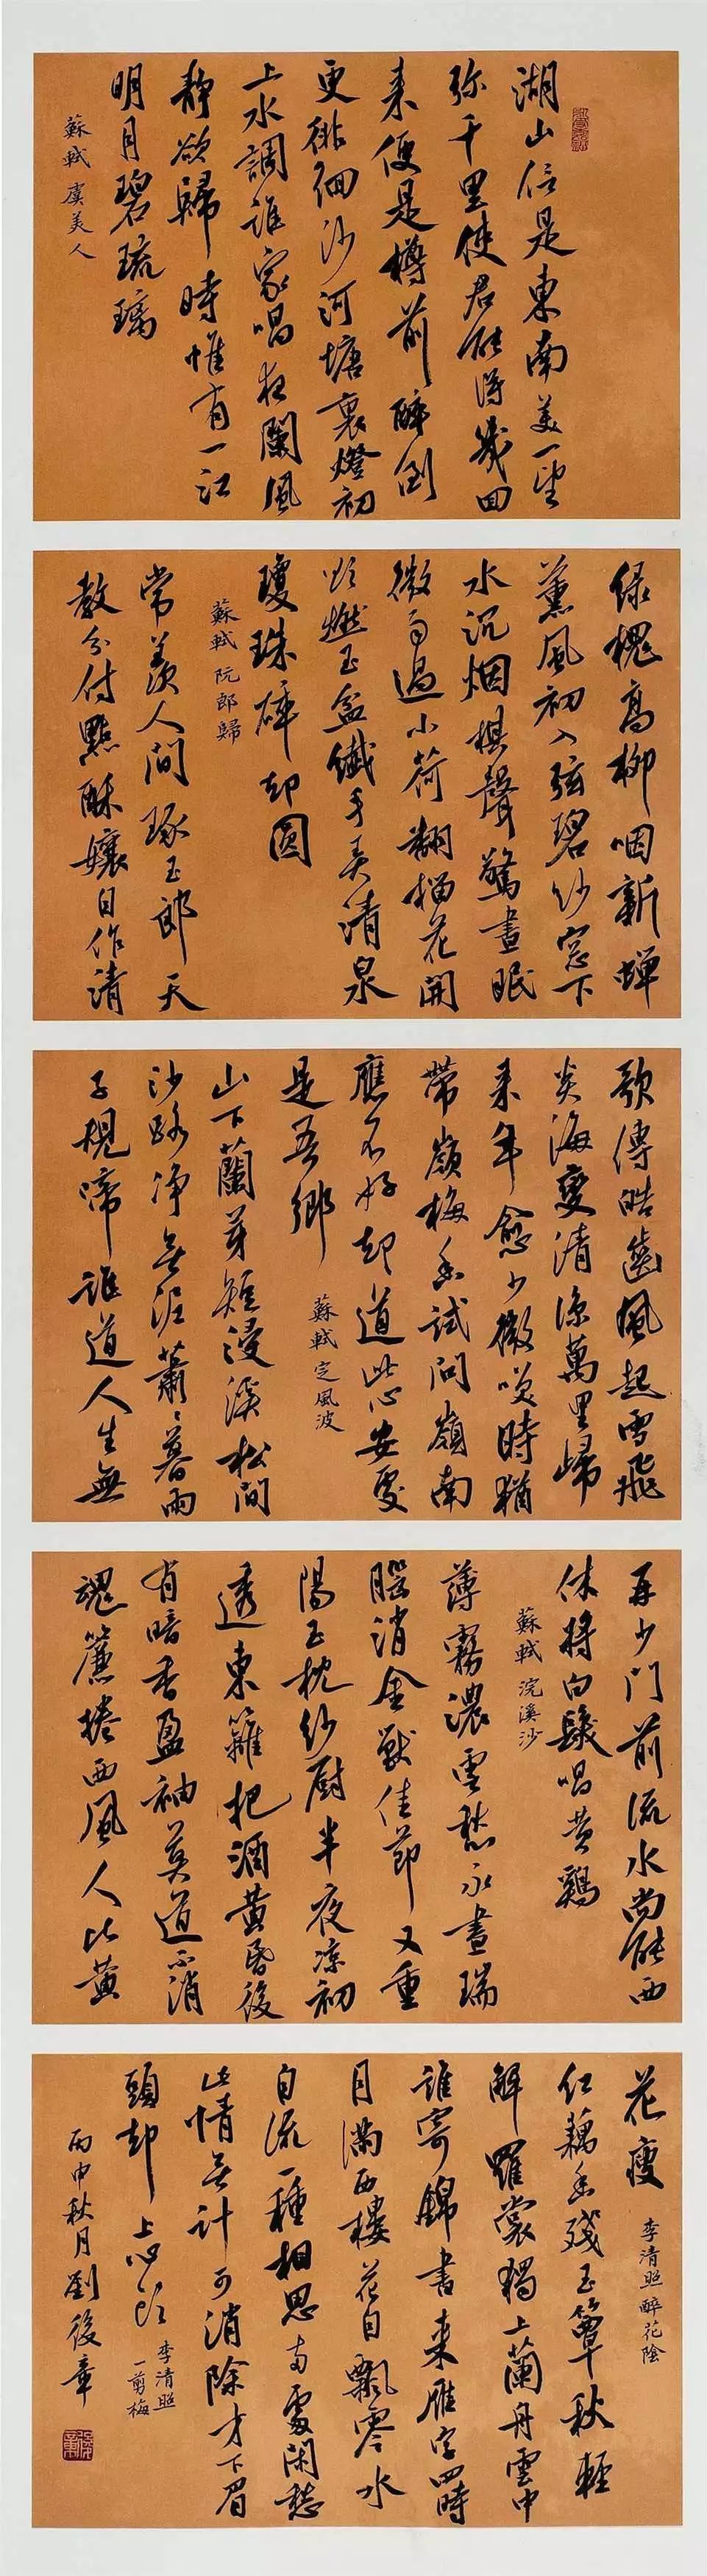 湖山信是東南美一望
弥千里使君能得幾回
来便是樽前醉倒
更徘徊沙河塘裏燈初
上水調誰家唱夜闌風
静欲歸時惟有一江
明月碧琉璃
蘇軾 虞美人
绿槐高柳咽新蝉
薰風初入弦碧纱窓下
水沉烟棋聲驚晝眠
微雨過小荷翻榴花開
欲燃玉盆纖手弄清泉
瓊珠碎却圓
蘇軾 阮郎歸
常羨人間琢玉郎天
教分付點酥孃自作清
歌傳皓齒風起雪飛
炎海變清涼萬里歸
来年愈少微笑時猶
帶嶺梅香試問嶺南
應不好却道此心安處
是吾鄉
蘇軾定風波
山下蘭芽短浸溪松間
沙路净無泥蕭々暮雨
子規啼誰道人生無
再少門前流水尚能西
休將白髮唱黄鷄
蘇軾 浣溪沙
薄霧濃雲愁永晝瑞
腦消金獸佳節又重
陽玉枕纱厨半夜凉初
透東籬把酒黄昏後
有暗香盈袖莫道不消
魂簾捲西風人比黄
花瘦
李清照醉花陰
红藕香殘玉簟秋輕
解羅裳獨上蘭舟雲中
誰寄錦書来雁字回時
月滿西樓花自飄零水
自流一種相思兩處閑愁
此情無計可消除才下眉
頭却上心頭
李清照
一剪梅
丙申秋月劉後章